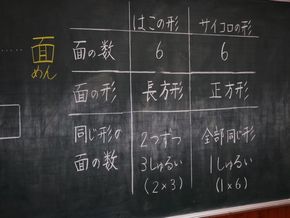 面
めん
はこの形 サイコロの形
面の数 6 6
面の形 長方形 正方形
同じ形の 2つずつ 全部同じ形
面の数 3しゅるい 1しゅるい
(2×3) (1×6)